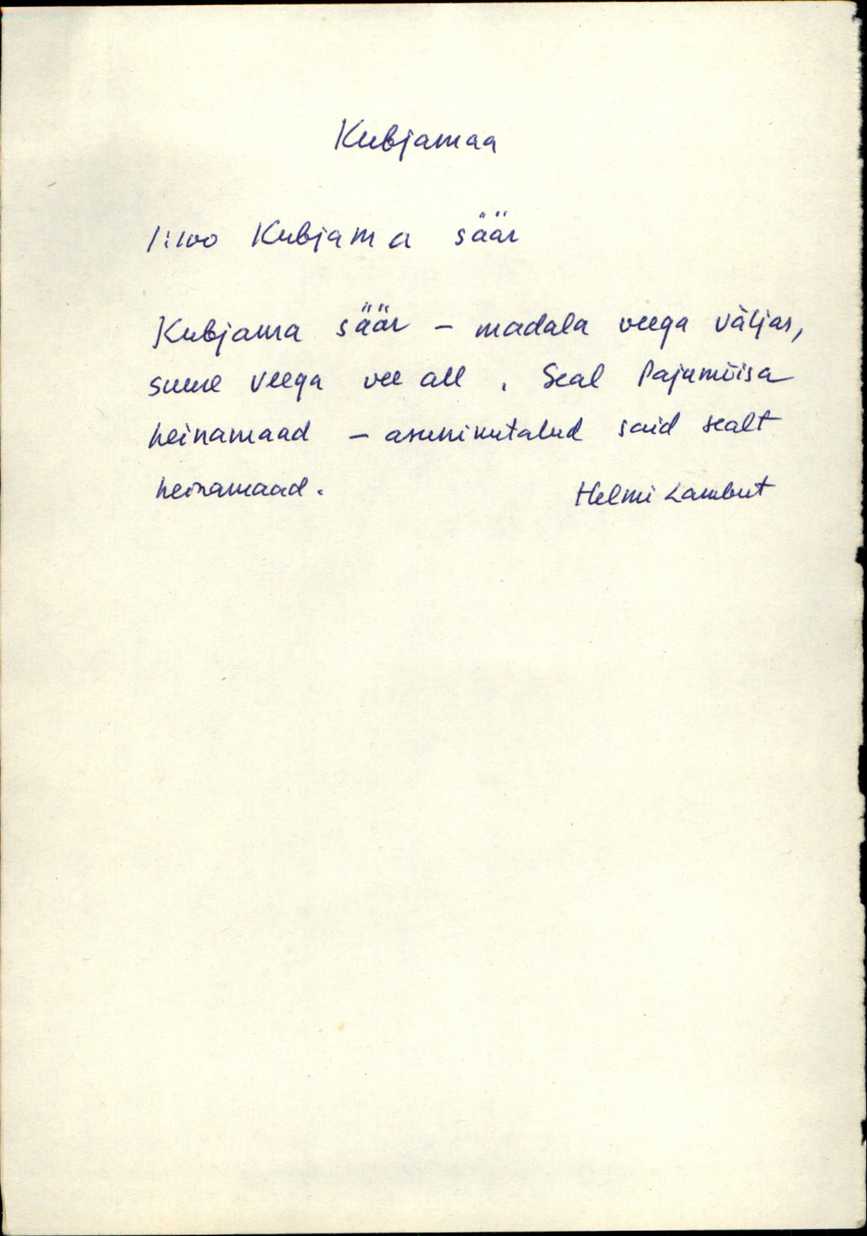 Kubjamaa
1:100 Kubjama säär
Kubjama säär – madala veega väljas,
suure veega vee all. Seal Pajumõisa
heinamaad – asunikutalud said sealt
heinamaad. Helmi Lambut